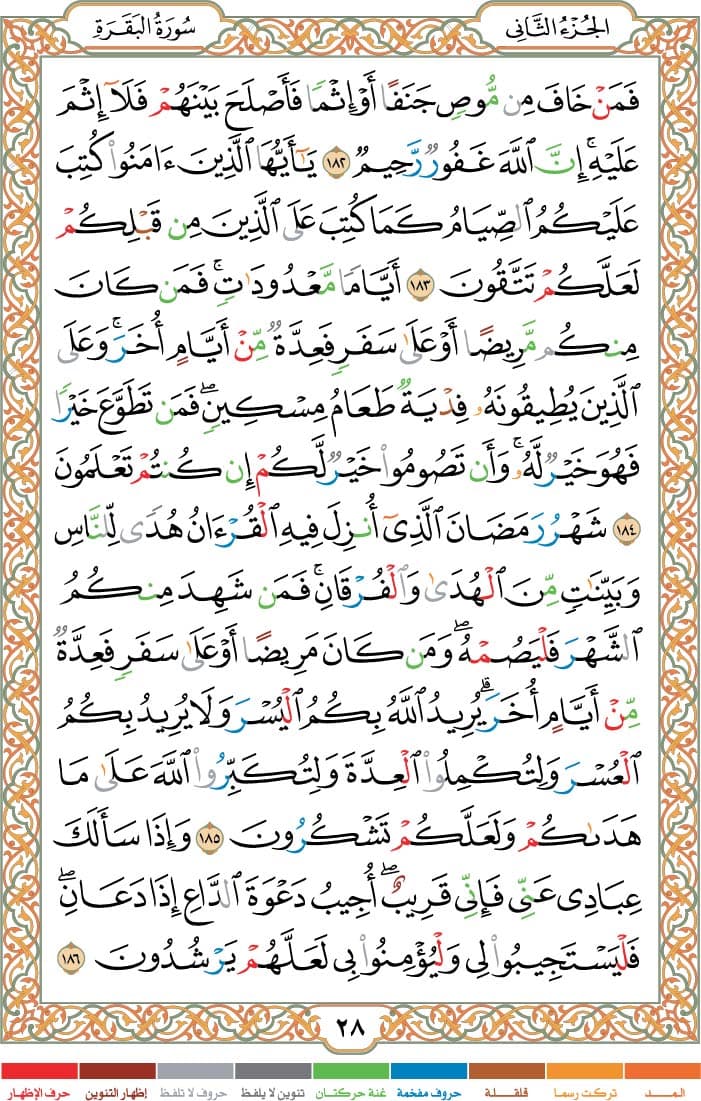 الجُزْءُ الثَّانِى
سُورَةُ البَقَرَةِ
فَمَنْ خَافَ مِن مُّوصٍ جَنَفًا أَوْ إِثْمًا فَأَصْلَحَ بَيْنَهُمْ فَلَآ إِثْمَ
عَلَيْهِ ۚ إِنَّ ٱللَّهَ غَفُورٌ رَّحِيمٌ ١٨٢ يَـٰٓأَيُّهَا ٱلَّذِينَ ءَامَنُوا۟ كُتِبَ
عَلَيْكُمُ ٱلصِّيَامُ كَمَا كُتِبَ عَلَى ٱلَّذِينَ مِن قَبْلِكُمْ
لَعَلَّكُمْ تَتَّقُونَ ١٨٣ أَيَّامًا مَّعْدُودَٰتٍ ۚ فَمَن كَانَ
مِنكُم مَّرِيضًا أَوْ عَلَىٰ سَفَرٍ فَعِدَّةٌ مِّنْ أَيَّامٍ أُخَرَ ۚ وَعَلَى
ٱلَّذِينَ يُطِيقُونَهُۥ فِدْيَةٌ طَعَامُ مِسْكِينٍ ۖ فَمَن تَطَوَّعَ خَيْرًا
فَهُوَ خَيْرٌ لَّهُۥ ۚ وَأَن تَصُومُوا۟ خَيْرٌ لَّكُمْ إِن كُنتُمْ تَعْلَمُونَ
١٨٤ شَهْرُ رَمَضَانَ ٱلَّذِىٓ أُنزِلَ فِيهِ ٱلْقُرْءَانُ هُدًى لِّلنَّاسِ
وَبَيِّنَـٰتٍ مِّنَ ٱلْهُدَىٰ وَٱلْفُرْقَانِ ۚ فَمَن شَهِدَ مِنكُمُ
ٱلشَّهْرَ فَلْيَصُمْهُ ۖ وَمَن كَانَ مَرِيضًا أَوْ عَلَىٰ سَفَرٍ فَعِدَّةٌ
مِّنْ أَيَّامٍ أُخَرَ ۗ يُرِيدُ ٱللَّهُ بِكُمُ ٱلْيُسْرَ وَلَا يُرِيدُ بِكُمُ
ٱلْعُسْرَ وَلِتُكْمِلُوا۟ ٱلْعِدَّةَ وَلِتُكَبِّرُوا۟ ٱللَّهَ عَلَىٰ مَا
هَدَىٰكُمْ وَلَعَلَّكُمْ تَشْكُرُونَ ١٨٥ وَإِذَا سَأَلَكَ
عِبَادِى عَنِّى فَإِنِّى قَرِيبٌ ۖ أُجِيبُ دَعْوَةَ ٱلدَّاعِ إِذَا دَعَانِ ۖ
فَلْيَسْتَجِيبُوا۟ لِى وَلْيُؤْمِنُوا۟ بِى لَعَلَّهُمْ يَرْشُدُونَ ١٨٦
٢٨
المـــد تركت رسما قلقـلة حروف مفخمة غنة حركتان تنوين لا يلفظ حروف لا تلفظ إظهار التنوين حرف الإظهار